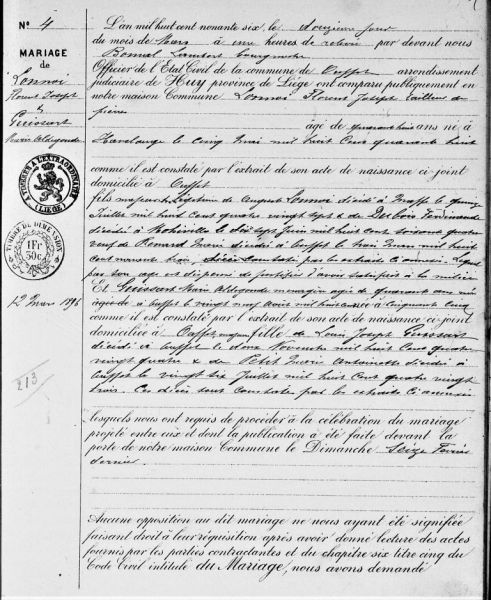 N° 4
MARIAGE
DE
Lonnoi
Florent Joseph
&
Guissart
Marie Aldegonde
A TIMBRER A L'EXTRAORDINAIRE
(LIEGE)
TIMBRE DE DIMENSION
1 Fr
50c
12 Mars 1896
213
L'an mil huit cent nonante six le douzième jour
du mois de Mars à une heures de relevée par devant nous
Bonnet Lambert bourgmestre
Officier de l'État Civil de la commune de Ouffet arrondissement
judiciaire de Huy province de Liège ont comparu publiquement en
notre maison Commune Lonnoi Florent Joseph tailleur de
pierre
âgé de quarante huit ans né à
Havelange le cinq Mai mil huit Cent quarante huit
comme il est constaté par l'extrait de son acte de naissance ci-joint
domicilié à Ouffet
fils majeur & légitime de August Lonnoi décédé à le quinze
Juillet mil huit Cent quatre vingt sept & de Debois Ferdinande
décédée à le Juin mil huit Cent soixante quatre
veuf de Renard Marie décédée à Ouffet le trois Mars mil huit
Cent nonante trois, décès constatés par les extraits ci annexés. Lequel
par son age est dispensé de justifier d'avoir satisfait à la milice
Et Guissart Marie Aldegonde ménagère agée de quarante ans née
à Ouffet le vingt neuf Août mil huit cent Cinquante Cinq
comme il est constaté par l'extrait de son acte de naissance ci-joint
domiciliée à Ouffet majeure fille de Louis Joseph Guissart
décédé à Ouffet le onze Novembre mil huit Cent quatre
vingt quatre & de Petit Marie Antoinette décédée à
Ouffet le vingt six Juillet mil huit Cent quatre vingt
trois. Ces décès sont constatés par les extraits Ci annexés
lesquels nous ont requis de procéder à la célébration du mariage
projeté entre eux et dont la publication a été faite devant la
porte de notre maison Commune le Dimanche Seize Février
dernier.
Aucune opposition au dit mariage ne nous ayant été signifiée
faisant droit à leur réquisition après avoir donné lecture des actes
fournis par les parties contractantes et du chapitre six titre cinq du
Code Civil intitulé du Mariage, nous avons demandé